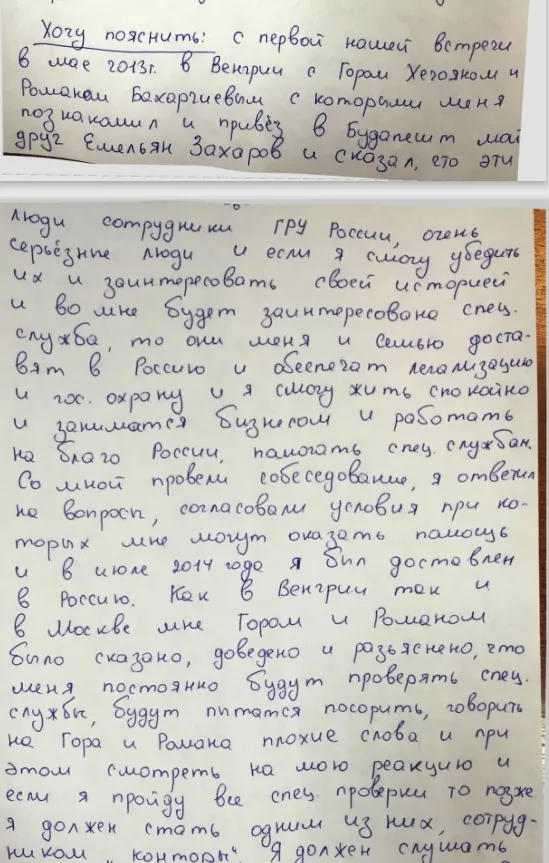 Хочу пояснить: с первой нашей встречи
в мае 2013г. в Венгрии с Гором Хечояном и
Романом Бахаргиевым с которыми меня
познакомил и привёз в Будапешт мой
друг Емельян Захаров и сказал, что эти
люди сотрудники ГРУ России, очень
серьёзные люди и если я смогу убедить
их и заинтересовать своей историей
и во мне будет заинтересована спец.
служба, то они меня и семью доста-
вят в Россию и обеспечат легализацию
и гос. охрану и я смогу жить спокойно
и заниматся бизнесом и работать
на благо России, помогать спец. службам.
Со мной провели собеседование, я ответил
на вопросы, согласовали условия при ко-
торых мне могут оказать помощь
и в июле 2014 года я был доставлен
в Россию. Как в Венгрии так и
в Москве мне Гором и Романом
было сказано, доведено и разьяснено, что
меня постоянно будут проверять спец.
службы, будут пытатся посорить, говорить
на Гора и Романа плохие слова и при
этом смотреть на мою реакцию и
если я пройду все спец. проверки то позже
я должен стать одним из них, сотруд-
ником „конторы“. Я должен слушать